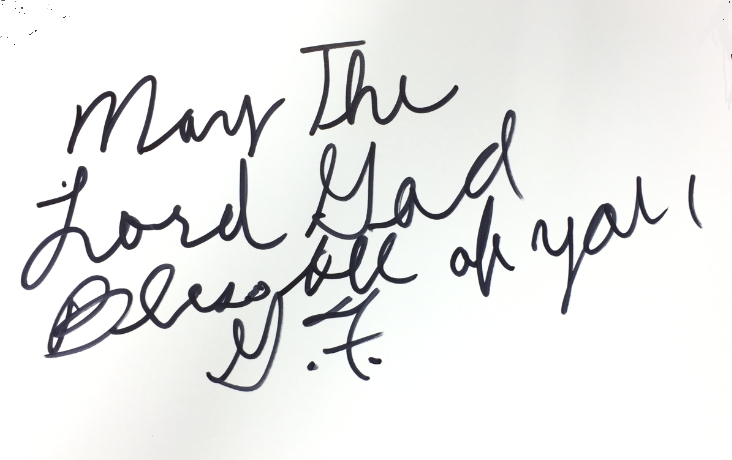 May The
Lord God
Bless all of you,
G.F.